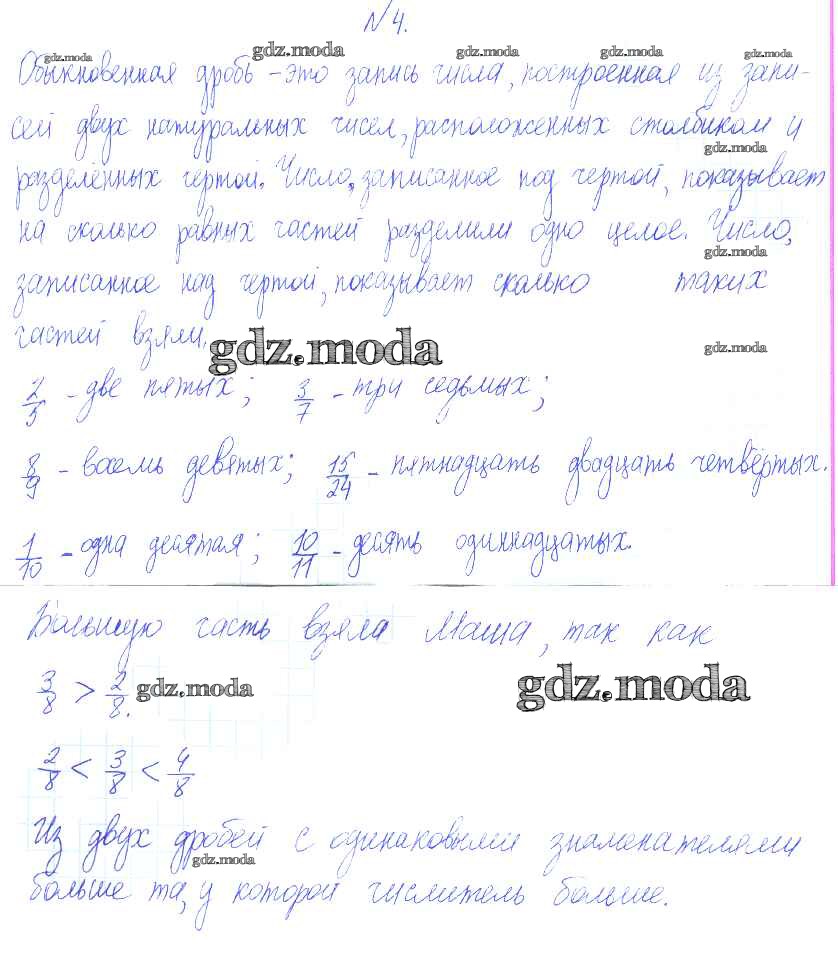 № 4.
Обыкновенная дробь - это запись числа, построенная из запи-
сей двух натуральных чисел, расположенных столбиком и
разделённых чертой. Число, записанное под чертой, показывает
на сколько равных частей разделили одно целое. Число,
записанное над чертой, показывает сколько таких
частей взяли.
2/5 - две пятых; 3/7 - три седьмых;
8/9 - восемь девятых; 15/24 - пятнадцать двадцать четвёртых.
1/10 - одна десятая; 10/11 - десять одиннадцатых.
Большую часть взяла Маша, так как
3/8 > 2/8.
2/8 < 3/8 < 4/8
Из двух дробей с одинаковыми знаменателями
больше та, у которой числитель больше.
gdz.moda
gdz.moda
gdz.moda
gdz.moda
gdz.moda
gdz.moda
gdz.moda
gdz.moda
gdz.moda
gdz.moda
gdz.moda
gdz.moda